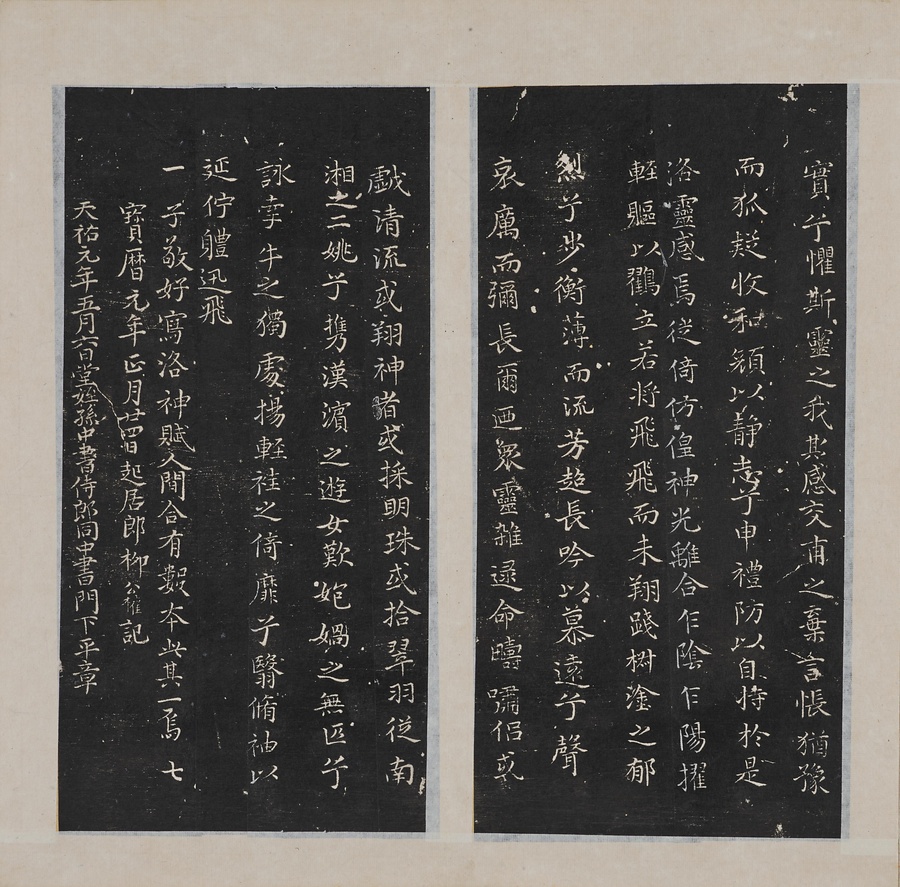 實兮懼斯靈之我其感交甫之棄言悵猶豫
而狐疑收和顏以靜志兮申禮防以自持於是
洛靈感焉徙倚仿偟神光離合乍陰乍陽擢
輕軀以鸖立若將飛飛而未翔踐椒塗之郁
烈兮步衡薄而流芳超長吟以慕遠兮聲
哀厲而彌長爾迺衆靈雜遝命疇嘯侶或
戲清流或翔神渚或採明珠或拾翠羽從南
湘之二姚兮攜漢濱之遊女歎㚿媧之無匹兮
詠牽牛之獨處揚輕袿之倚靡兮翳脩袖以
延佇軆迅飛
一 子敬好寫洛神賦人間合有數本此其一焉 七
寶曆元年正月廿四日起居郎柳公權記
天祐元年五月六日堂姪孫中書侍郎同中書門下平章